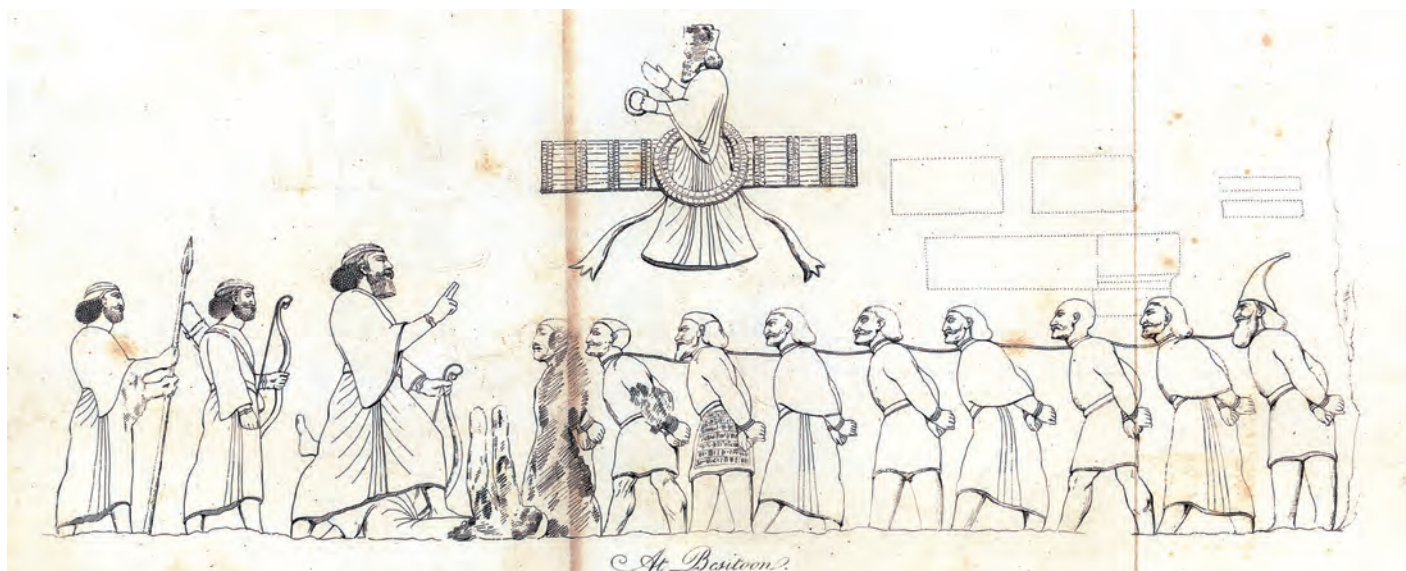 At Besitoon.